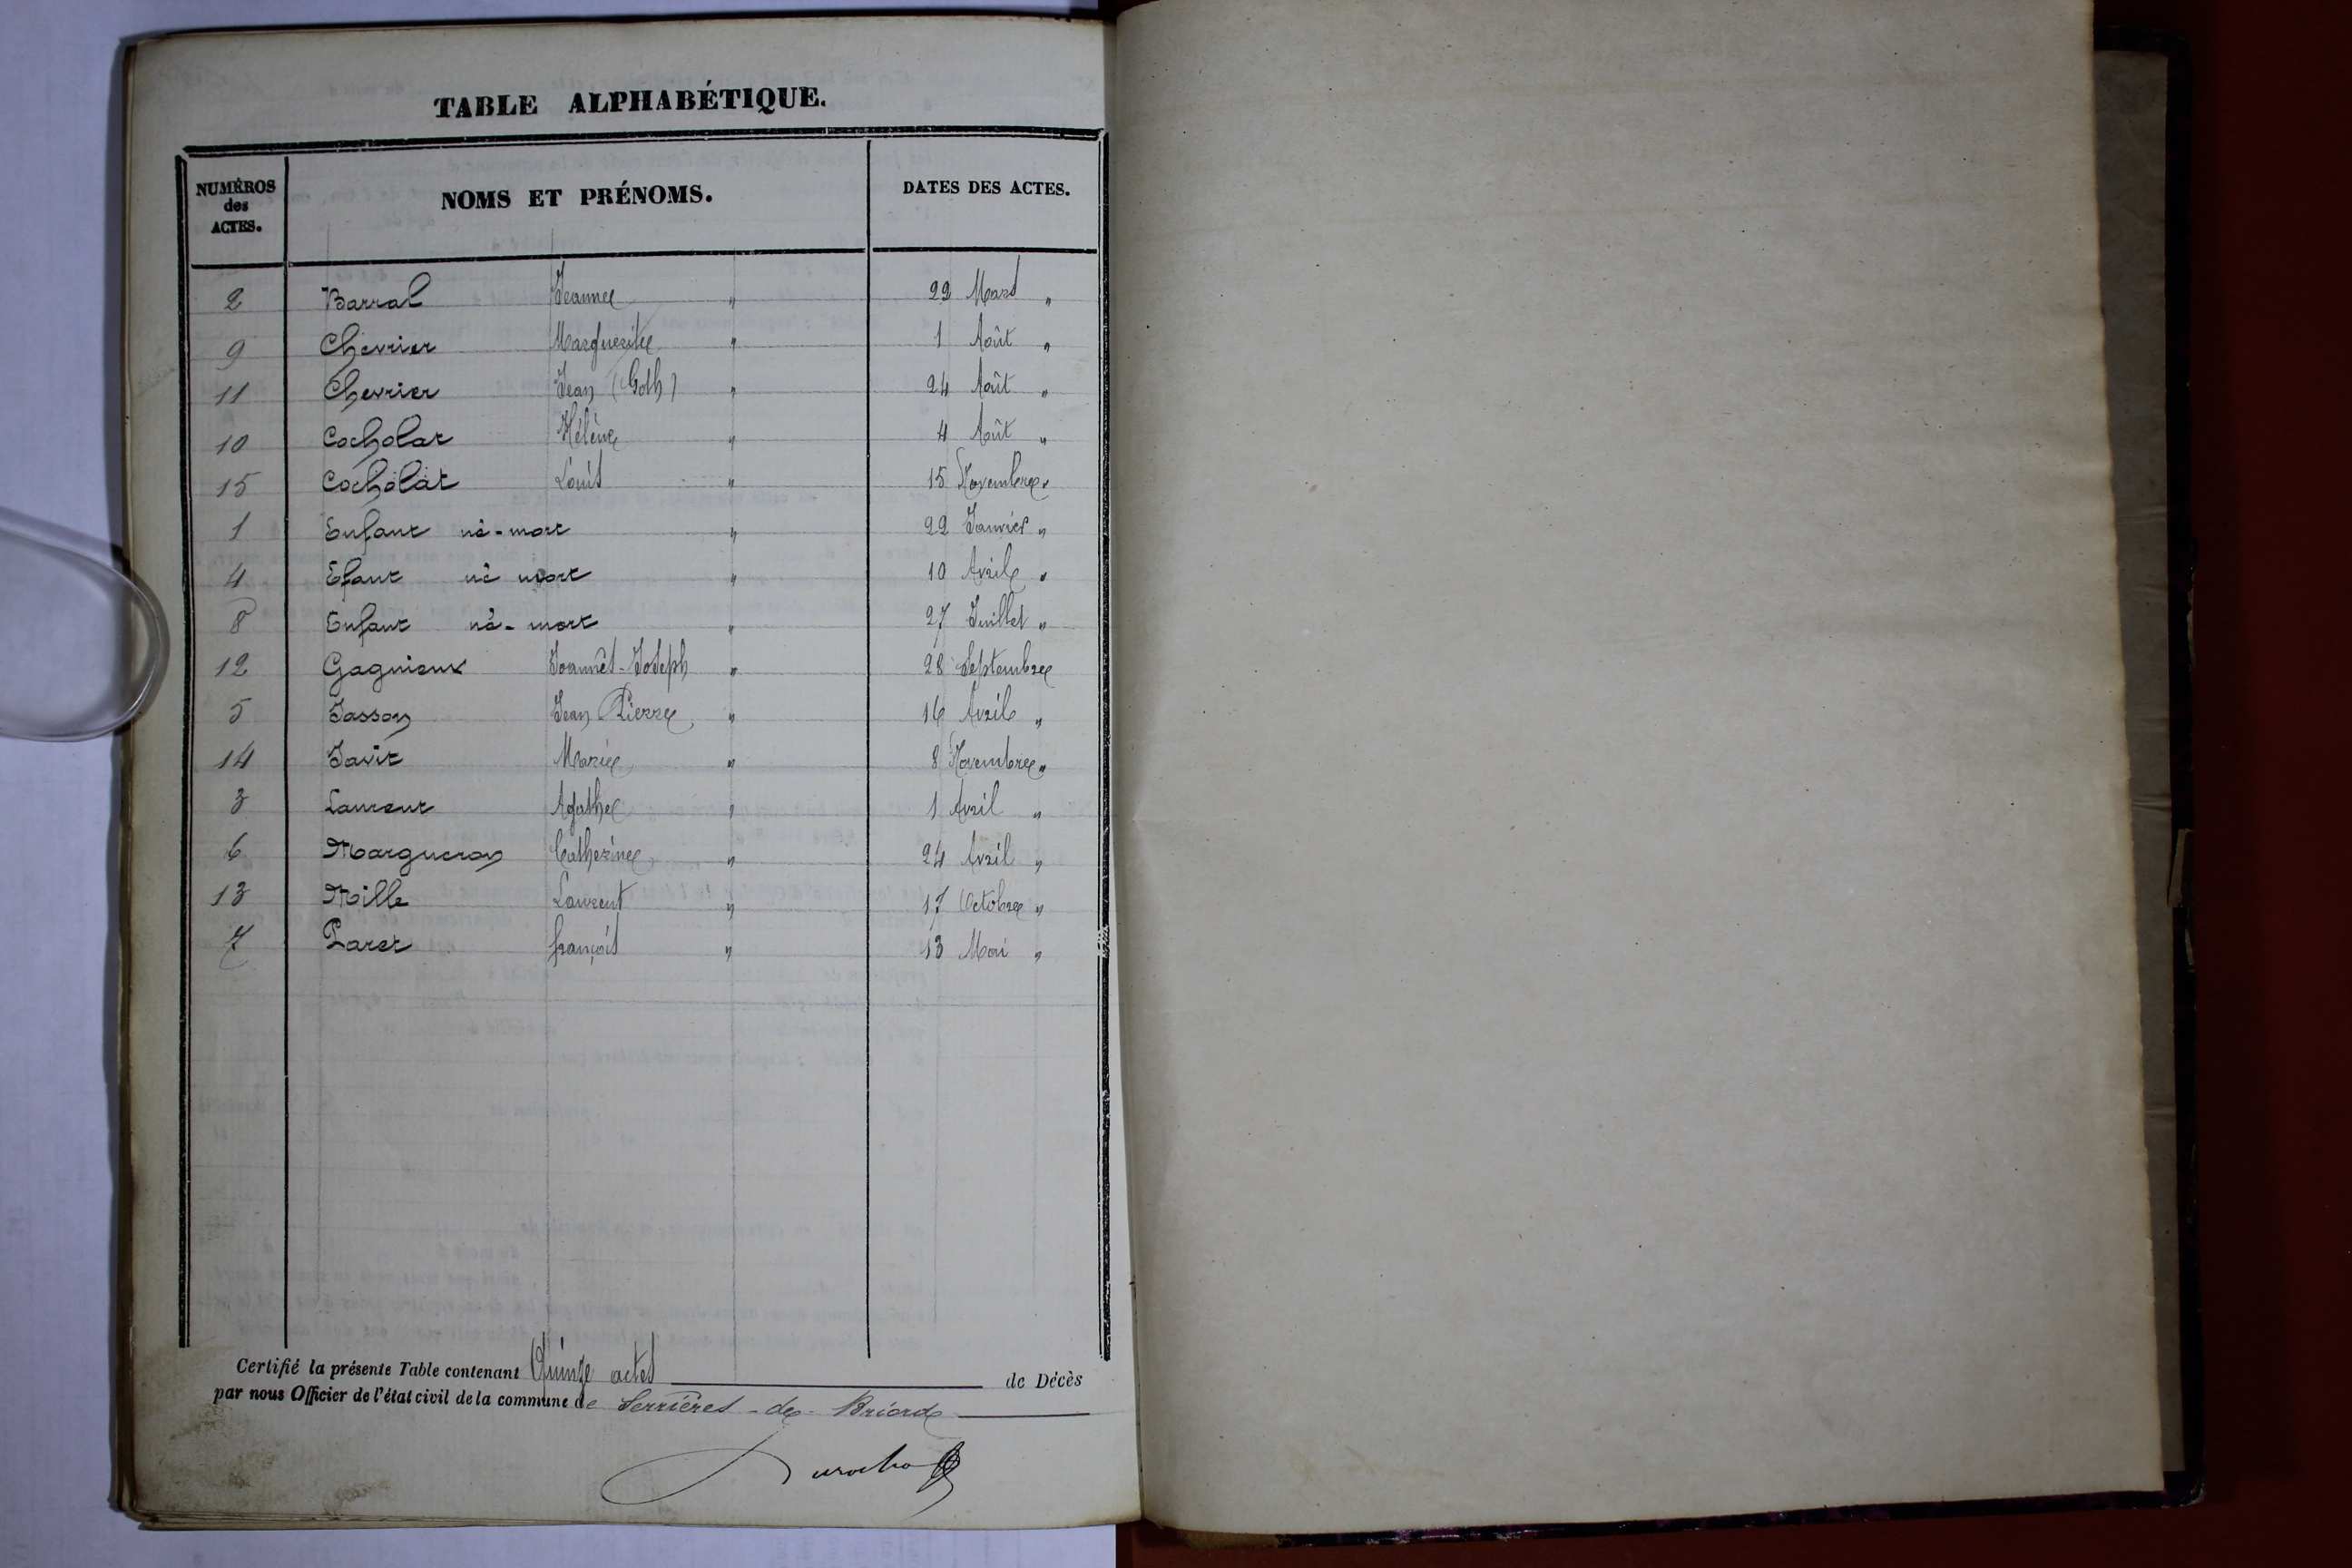 TABLE ALPHABÉTIQUE.
NUMÉROS des ACTES. NOMS ET PRÉNOMS. DATES DES ACTES.
2 Barral Jeanne " 22 Mars "
9 Chevrier Marguerite " 1 Août "
11 Chevrier Jean (Goth) " 24 Août "
10 Cocholat Hélène " 4 Août "
15 Cocholat Louis " 15 Novembre "
1 Enfant né-mort " 22 Janvier "
4 Efant né mort " 10 Avril "
8 Enfant né-mort " 27 Juillet "
12 Gagnieux Joannès-Joseph " 28 Septembre
5 Jasson Jean Pierre " 16 Avril "
14 Javit Marie " 8 Novembre "
3 Laurent Agathe " 1 Avril "
6 Margueron Catherine " 24 Avril "
13 Mille Laurent " 17 Octobre "
7 Paret françois " 13 Mai "
Certifié la présente Table contenant Quinze actes de Décès
par nous Officier de l'état civil de la commune de Serrières-de-Briord